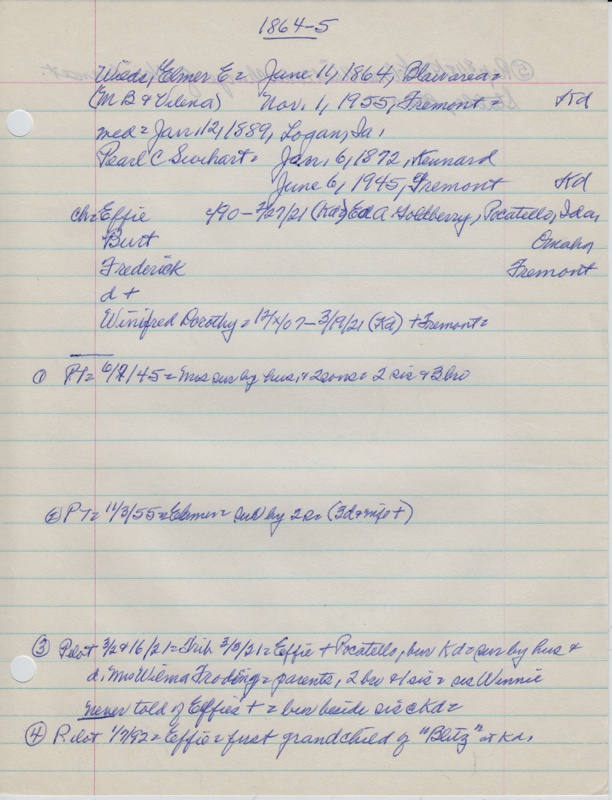 1864-5
Woods, Elmer E = June 11, 1864, Blair area =
(M B & Velena) Nov. 1, 1955, Fremont = Kd
med = Jan. 12, 1889, Logan, Ia,
Pearl C Swihart = Jan. 6, 1872, Kennard
June 6, 1945, Fremont Kd
ch = Effie 4/90 - 2/27/21 (Kd) Ed A Goldberry, Pocatello, Ida,
Burt Omaha,
Frederick Fremont
d +
Winifred Dorothy = 12/x/07 - 3/19/21 (Kd) + Fremont =
① PT = 6/7/45 = Mrs sur by hus, & 2 sons = 2 sis & 3 bro
② PT = 11/3/55 = Elmer = sur by 2 s = (3d & wife +)
③ Pilot 3/2 & 16/21 = Trib 3/3/21 = Effie + Pocatello, bur Kd = sur by hus &
d, Mrs Wilma = parents, 2 bro & 1 sis = sis Winnie
never told of Effie's + = bur beside sis c Kd =
④ Pilot 1/7/92 = Effie = first grandchild of "Blitz" at Kd,